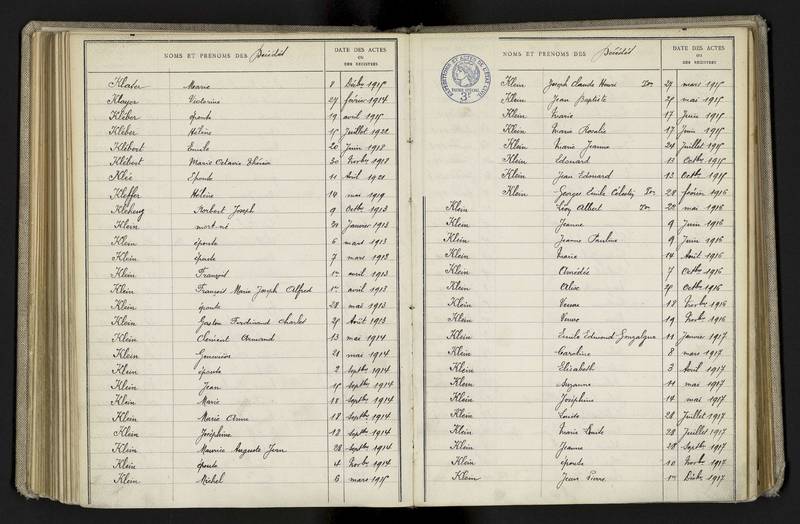 NOMS ET PRÉNOMS DES Décédés
DATE DES ACTES
OU
DES REGISTRES
Klater Marie 8 Décbre 1915
Klayer Victorine 27 février 1914
Kléber épouse 19 avril 1915
Kléber Hélène 15 Juillet 1921
Klébert Emile 20 Juin 1918
Klébert Marie Octavie 30 Novbre 1918
Klée Epouse 11 Avril 1921
Kleffer Hélène 14 mai 1919
Robert Joseph 9 Octbre 1913
Klein mort-né 21 Janvier 1913
Klein épouse 6 mars 1913
Klein épouse 7 mars 1913
Klein François 1er avril 1913
Klein François Marie Joseph Alfred 1er avril 1913
Klein épouse 28 mai 1913
Klein Gaston Ferdinand Charles 25 Août 1913
Klein Clément Armand 13 mai 1914
Klein Geneviève 21 mai 1914
Klein épouse 2 septbre 1914
Klein Jean 15 septbre 1914
Klein Marie 18 septbre 1914
Klein Marie Anne 18 septbre 1914
Klein Joséphine 18 septbre 1914
Klein Maurice Auguste Jean 28 septbre 1914
Klein épouse 4 Novbre 1914
Klein Michel 6 mars 1915
NOMS ET PRÉNOMS DES Décédés
DATE DES ACTES
OU
DES REGISTRES
3F
Klein Joseph Claude Henri Ton 29 mars 1915
Klein Jean Baptiste 25 mai 1915
Klein Marie 17 Juin 1915
Klein Maria Rosalie 17 Juin 1915
Klein Marie Jeanne 24 Juillet 1915
Klein Edouard 13 Octbre 1915
Klein Jean Edouard 13 Octbre 1915
Klein Georges Emile Célestin Ton 28 février 1916
Klein Léon Albert Ton 22 mai 1916
Klein Jeanne 9 Juin 1916
Klein Jeanne Pauline 9 Juin 1916
Klein Marie 14 Août 1916
Klein Amédée 7 Octbre 1916
Klein Alise 21 Octbre 1916
Klein Veuve 18 Novbre 1916
Klein Veuve 19 Novbre 1916
Klein Emile Edmond Gonzalgue 11 Janvier 1917
Klein Caroline 8 mars 1917
Klein Elisabeth 3 Avril 1917
Klein Suzanne 11 mai 1917
Klein Joséphine 14 mai 1917
Klein Louise 28 Juillet 1917
Klein Marie Louise 28 Juillet 1917
Klein Jeanne 28 Septbre 1917
Klein épouse 10 Novbre 1917
Klein Jean Pierre 1er Décbre 1917